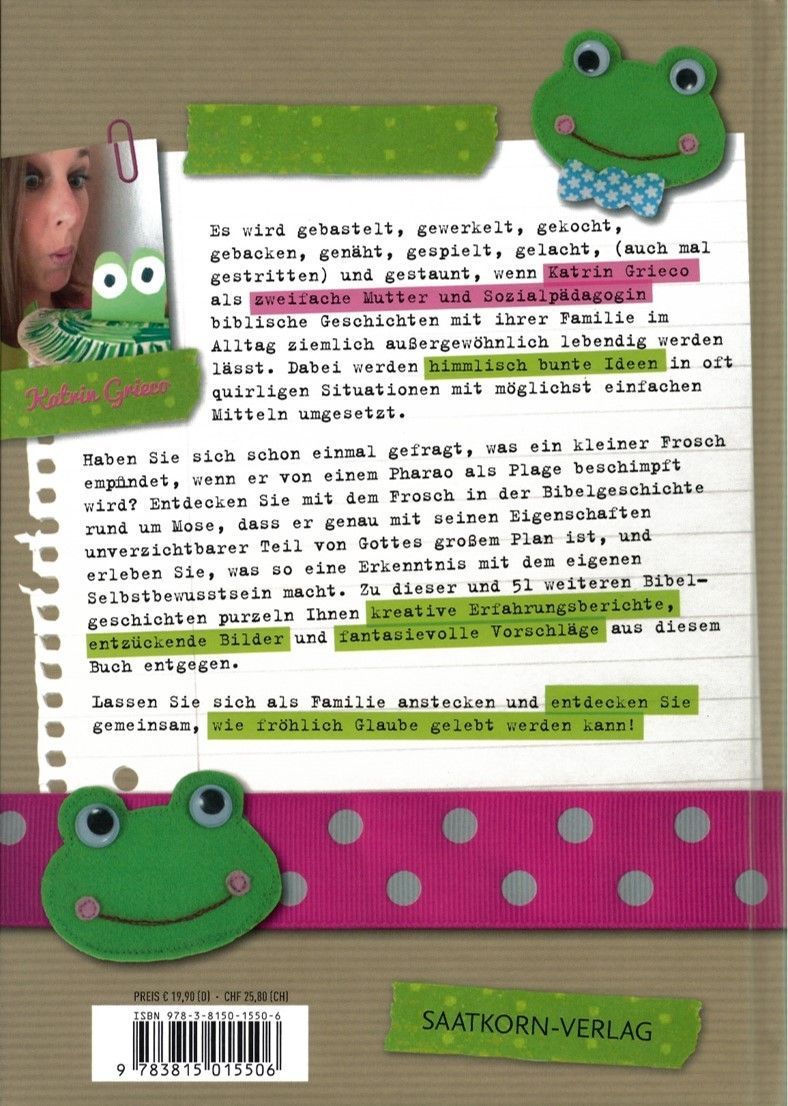 Es wird gebastelt, gewerkelt, gekocht,
gebacken, genäht, gespielt, gelacht, (auch mal
gestritten) und gestaunt, wenn Katrin Grieco
als zweifache Mutter und Sozialpädagogin
biblische Geschichten mit ihrer Familie im
Alltag ziemlich außergewöhnlich lebendig werden
lässt. Dabei werden himmlisch bunte Ideen in oft
quirligen Situationen mit möglichst einfachen
Mitteln umgesetzt.
Katrin Grieco
Haben Sie sich schon einmal gefragt, was ein kleiner Frosch
empfindet, wenn er von einem Pharao als Plage beschimpft
wird? Entdecken Sie mit dem Frosch in der Bibelgeschichte
rund um Mose, dass er genau mit seinen Eigenschaften
unverzichtbarer Teil von Gottes großem Plan ist, und
erleben Sie, was so eine Erkenntnis mit dem eigenen
Selbstbewusstsein macht. Zu dieser und 51 weiteren Bibel-
geschichten purzeln Ihnen kreative Erfahrungsberichte,
entzückende Bilder und fantasievolle Vorschläge aus diesem
Buch entgegen.
Lassen Sie sich als Familie anstecken und entdecken Sie
gemeinsam, wie fröhlich Glaube gelebt werden kann!
PREIS € 19,90 (D) · CHF 25,80 (CH)
ISBN 978-3-8150-1550-6
9 783815 015506
SAATKORN-VERLAG